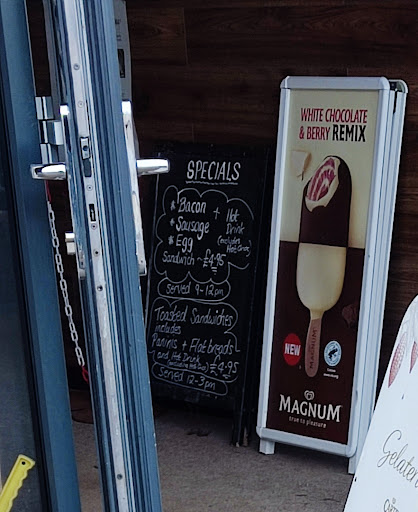 SPECIALS
* Bacon + Hot
* Sausage Drink
* Egg (includes
Sandwich ~ £4.95
Served 9-12pm
Toasted Sandwiches
includes
Paninis + Flatbreads
and Hot Drink
£4.95
Served 12-3pm
WHITE CHOCOLATE
& BERRY REMIX
NEW
MAGNUM
MAGNUM
true to pleasure
Gelater